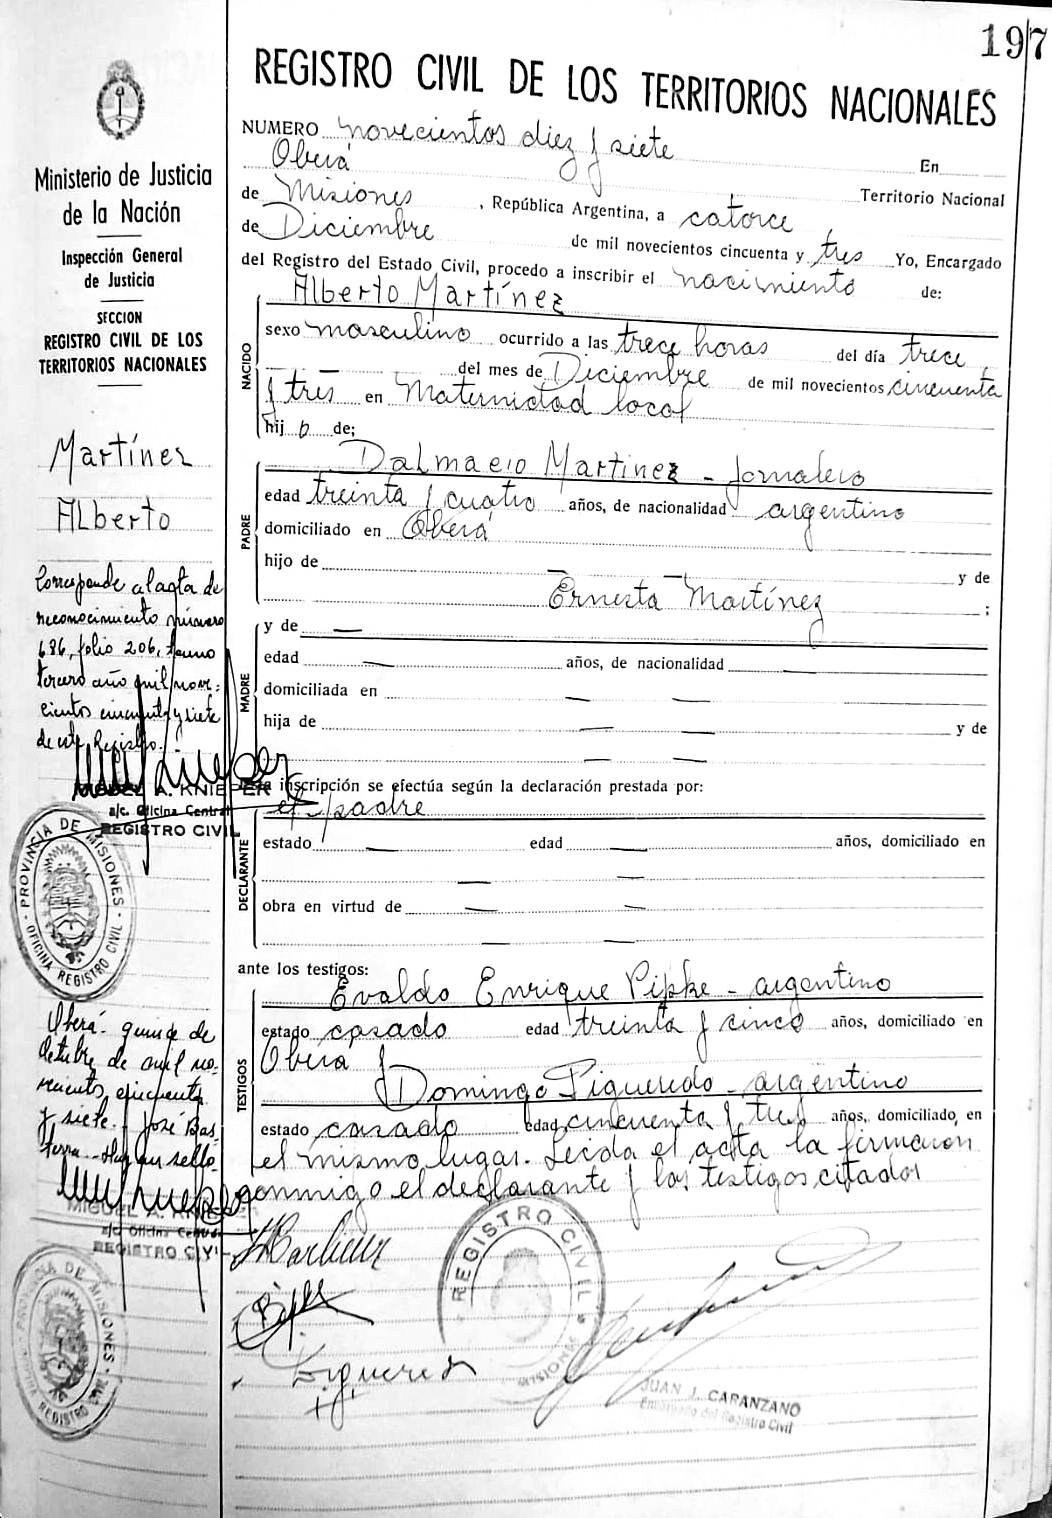 197
REGISTRO CIVIL DE LOS TERRITORIOS NACIONALES
Ministerio de Justicia
de la Nación
Inspección General
de Justicia
SECCION
REGISTRO CIVIL DE LOS
TERRITORIOS NACIONALES
Martínez
Alberto
Corresponde al acta de
reconocimiento número
686, folio 206, tomo
tercero año mil nove-
cientos cincuenta y siete
de este Registro.
MIGUEL A. KNIEPER
a/c. Oficina Central
REGISTRO CIVIL
PROVINCIA DE MISIONES
OFICINA REGISTRO CIVIL
Oberá quince de
Octubre de mil no-
vecientos cincuenta
y siete. José Bas-
terra. Hay un sello.
MIGUEL A. KNIEPER
a/c Oficina Central
REGISTRO CIVIL
PROVINCIA DE MISIONES
OFICINA REGISTRO CIVIL
NUMERO novecientos diez y siete
Oberá En
de Misiones, República Argentina, a catorce Territorio Nacional
de Diciembre de mil novecientos cincuenta y tres Yo, Encargado
del Registro del Estado Civil, procedo a inscribir el nacimiento de:
NACIDO
Alberto Martínez
sexo masculino ocurrido a las trece horas del día trece
del mes de Diciembre de mil novecientos cincuenta
y tres en Maternidad local
hijo de;
PADRE
Dalmacio Martinez - Jornalero
edad treinta y cuatro años, de nacionalidad argentino
domiciliado en Oberá
hijo de — — y de
Ernesta Martínez ;
MADRE
y de —
edad — años, de nacionalidad —
domiciliada en — —
hija de — — y de
— —
La inscripción se efectúa según la declaración prestada por:
DECLARANTE
el padre
estado — edad — años, domiciliado en
— —
obra en virtud de — —
— —
ante los testigos:
TESTIGOS
Evaldo Enrique Pipke - argentino
estado casado edad treinta y cinco años, domiciliado en
Oberá y
Domingo Figueredo - argentino
estado casado edad cincuenta y tres años, domiciliado en
el mismo lugar. Leída el acta la firmaron
conmigo el declarante y los testigos citados
Martinez
Figueredo
REGISTRO CIVIL
MISIONES
JUAN J. CARANZANO
Encargado del Registro Civil